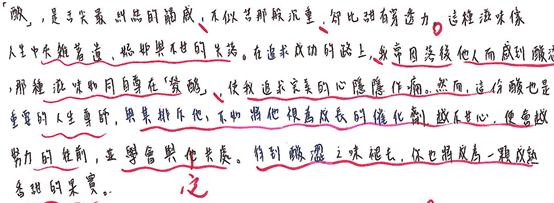 「酸」,是舌尖最熟悉的觸感、不似苦那般沉重,卻比甜有穿透力。這種滋味像
人生中失難著道、嫉妒與不甘的失落。在追求成功的路上,我常因落後他人而感到酸澀
,那種滋味如同自尊在「發酸」、使我追求完美的心隱隱作痛。然而,這份酸也是
重要的人生導師,與其排斥他、不如將他視為成長的催化劑越不甘心,便會越
努力的往前,並學會與他共處。待到酸澀之味褪去,你也將成為一顆成熟
香甜的果實。
定